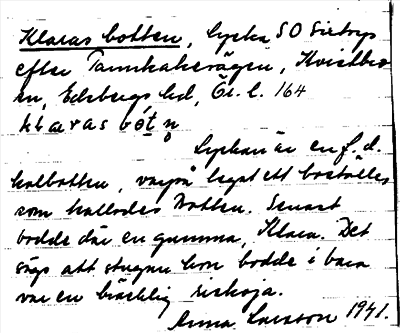 Klaras botten, lycka SO Sietorp
efter Pannkakevägen, Kvistbro
sn, Edsbergs hd, Ör. l. 164
klaras bótn̥
Lyckan är en f. d.
kolbotten, varpå legat ett boställe
som kallades Botten. Senast
bodde där en gumma, Klara. Det
sägs att stugan hon bodde i bara
var en bräcklig riskoja.
Anna Larsson 1941.